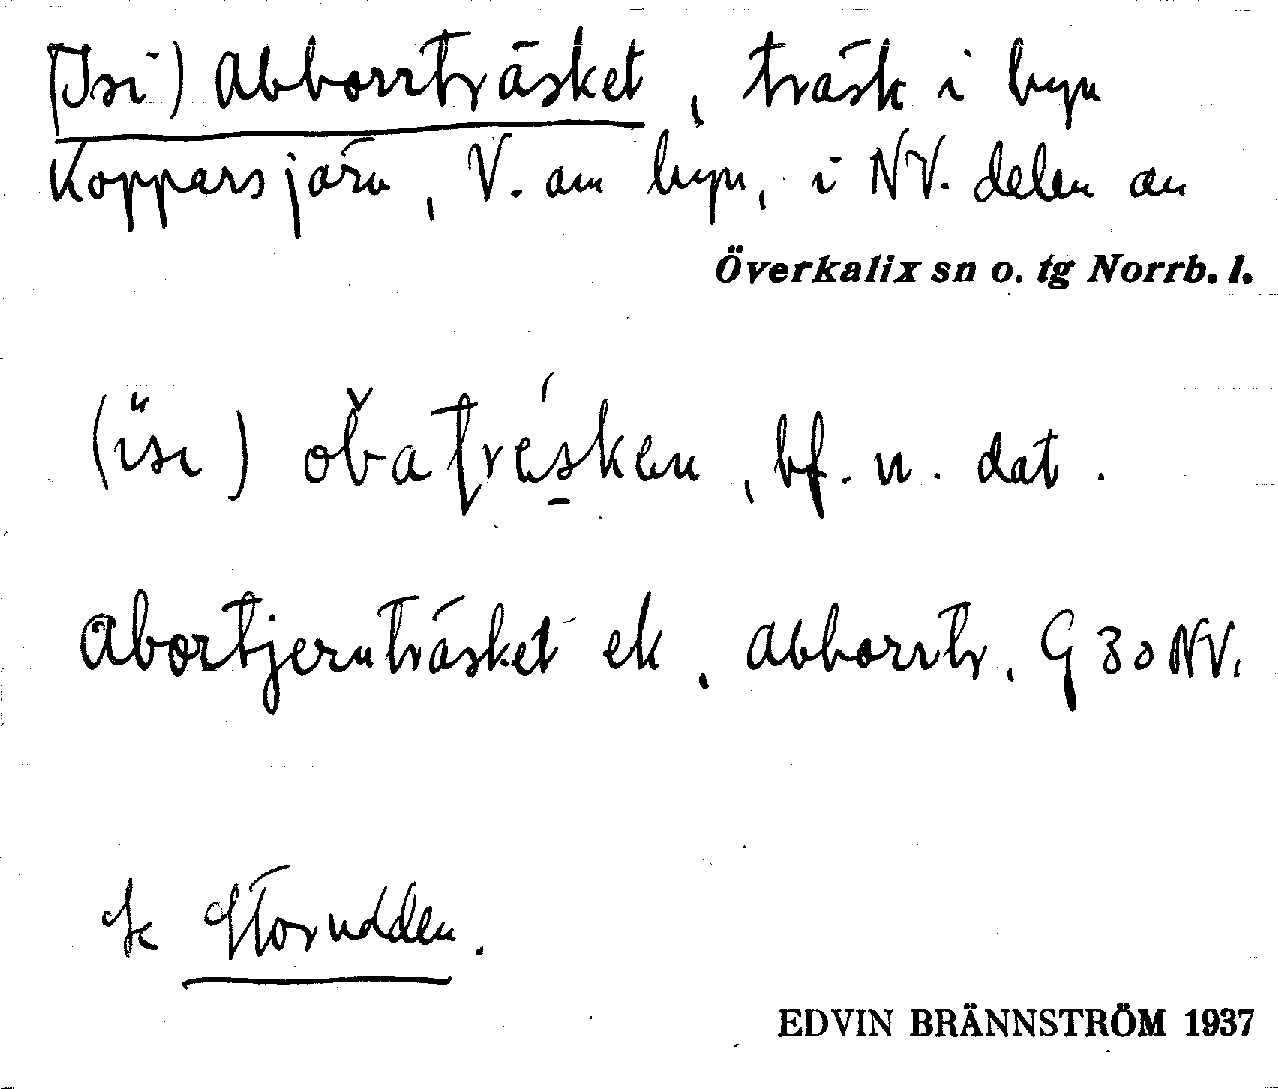 (Isi) Abborrträsket, träsk i byn
Kopparsjärv, V. om byn, i NV. delen av
Överkalix sn o. tg Norrb. l.
bf. n. dat.
Abortjernträsket ek. Abborrtr. G 30 NV.
Storudden.
EDVIN BRÄNNSTRÖM 1937